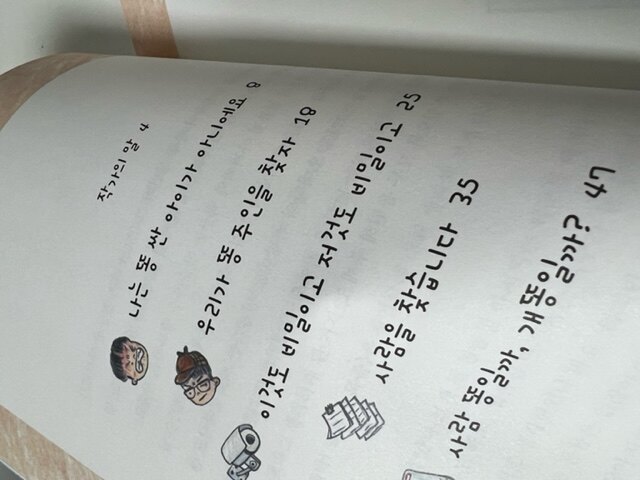 작가의 말 4
나는 똥 싼 아이가 아니에요 8
우리가 똥 주인을 찾자 18
이것도 비밀이고 저것도 비밀이고 25
사람을 찾습니다 35
사람 똥일까, 개똥일까? 47